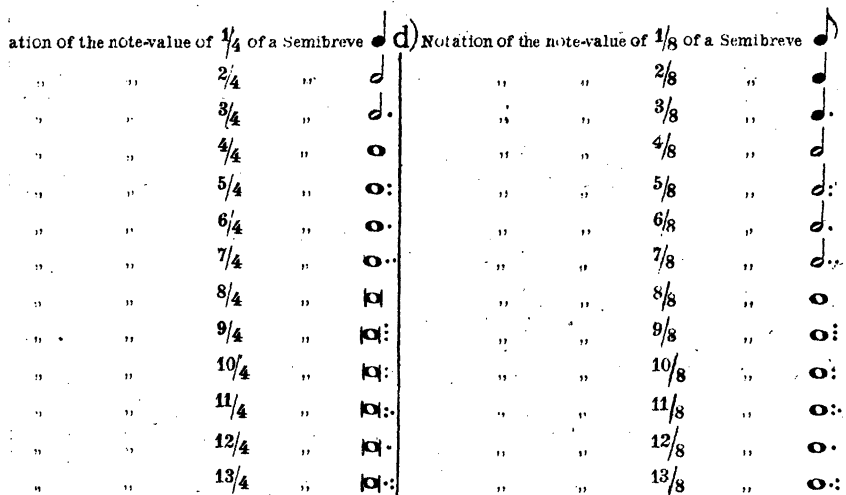 ation of the note-value of 1/4 of a Semibreve
„ „ 2/4 „
„ „ 3/4 „
„ „ 4/4 „
„ „ 5/4 „
„ „ 6/4 „
„ „ 7/4 „
„ „ 8/4 „
„ „ 9/4 „
„ „ 10/4 „
„ „ 11/4 „
„ „ 12/4 „
„ „ 13/4 „
d) Notation of the note-value of 1/8 of a Semibreve
„ „ 2/8 „
„ „ 3/8 „
„ „ 4/8 „
„ „ 5/8 „
„ „ 6/8 „
„ „ 7/8 „
„ „ 8/8 „
„ „ 9/8 „
„ „ 10/8 „
„ „ 11/8 „
„ „ 12/8 „
„ „ 13/8 „